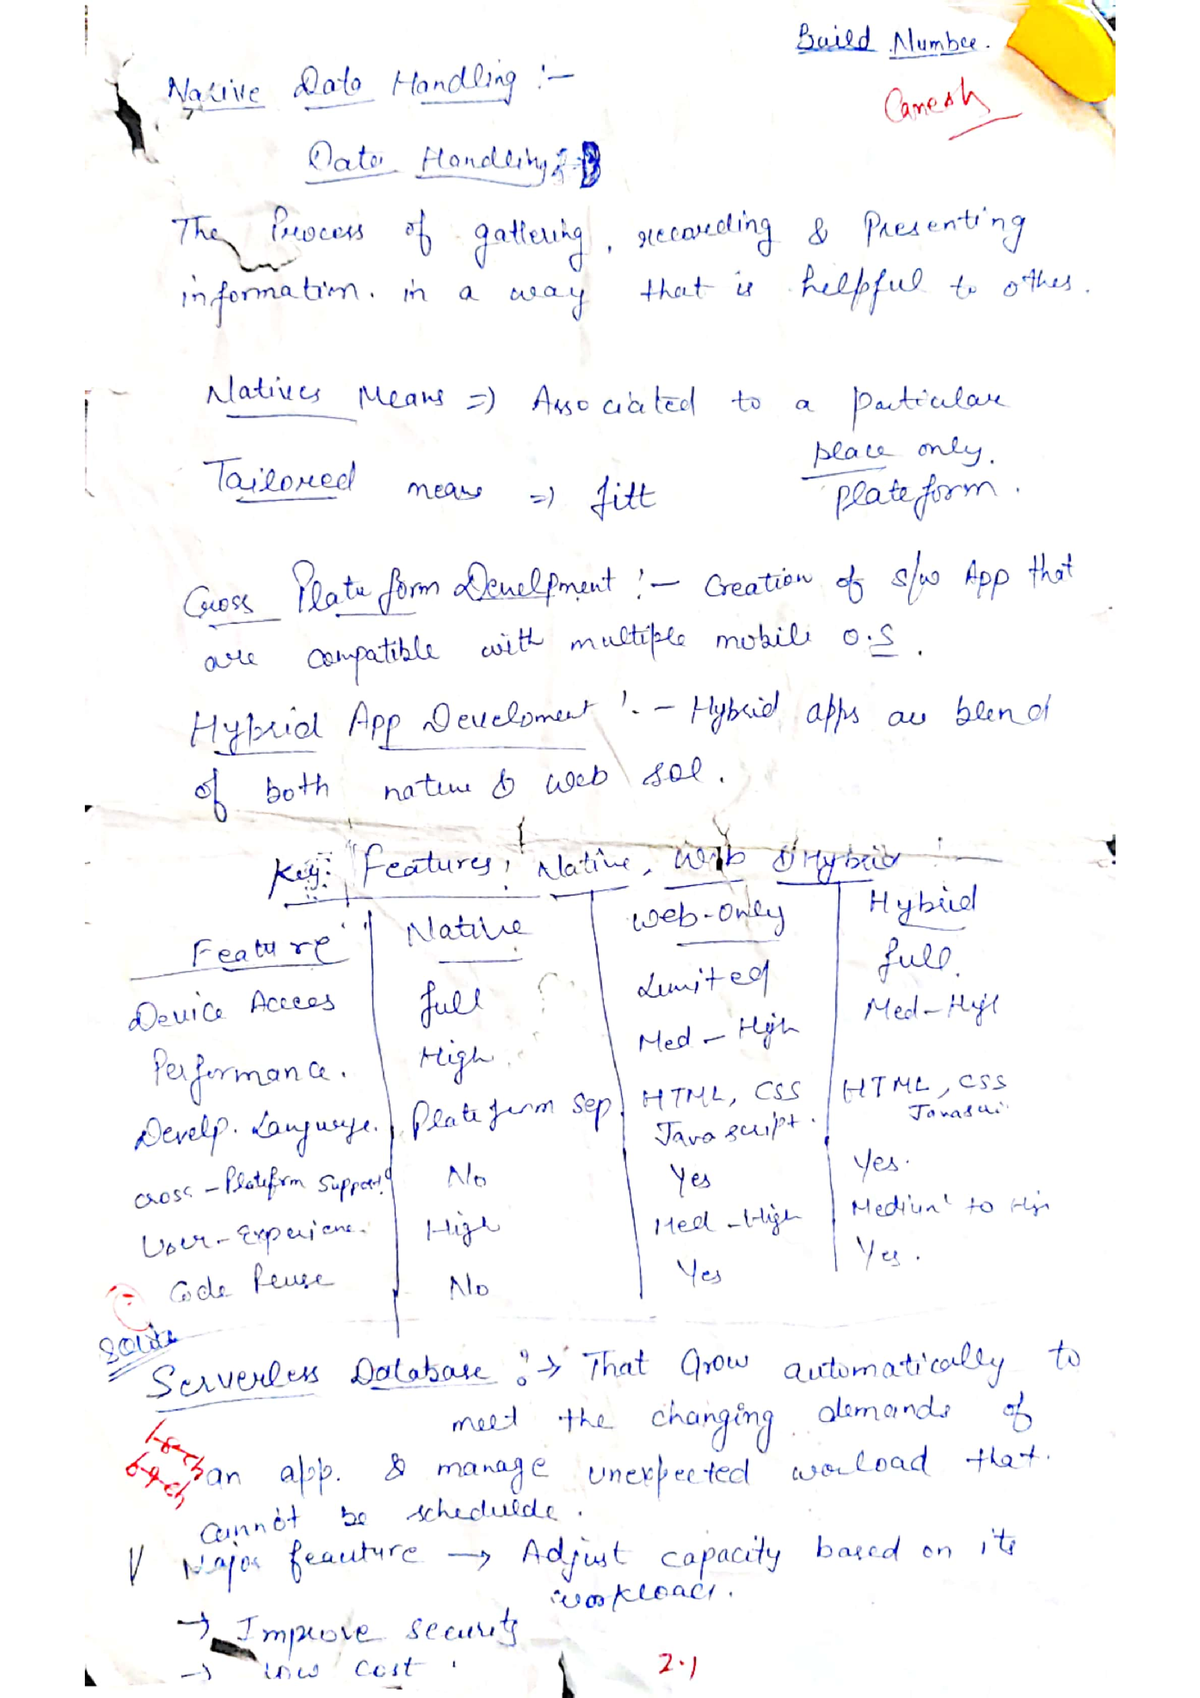 Build Number.
Native Data Handling :-
Ganesh
Data Handling :-
The Process of gathering, recording & Presenting
information. in a way that is helpful to othes.
Natives Means => Associated to a particular
place only.
Tailored means => fitt plateform.
Cross Plate form Develpment :- Creation of s/w App that
are compatible with multiple mobile O.S.
Hybrid App Develoment :- Hybrid apps are blend
of both native & web sol.
Key: Features, Native, Web & Hybrid :-
Feature Native Web-Only Hybrid
Device Access full Limited full.
Performance. High Med - High Med - High
Develp. Language. Plateform Sep. HTML, CSS Javascript. HTML, CSS
Cross-Plateform Support No Yes Yes.
User-Experience. High Med - High Medium to High
Code Reuse No Yes Yes.
SQLite
Serverless Database :-> That Grow automatically to
meet the changing demands of
an app. & manage unexpected worload that.
cannot be schedulde.
Major feauture -> Adjust capacity based on its
workload.
-> Improve security
-> low cost.
2.1